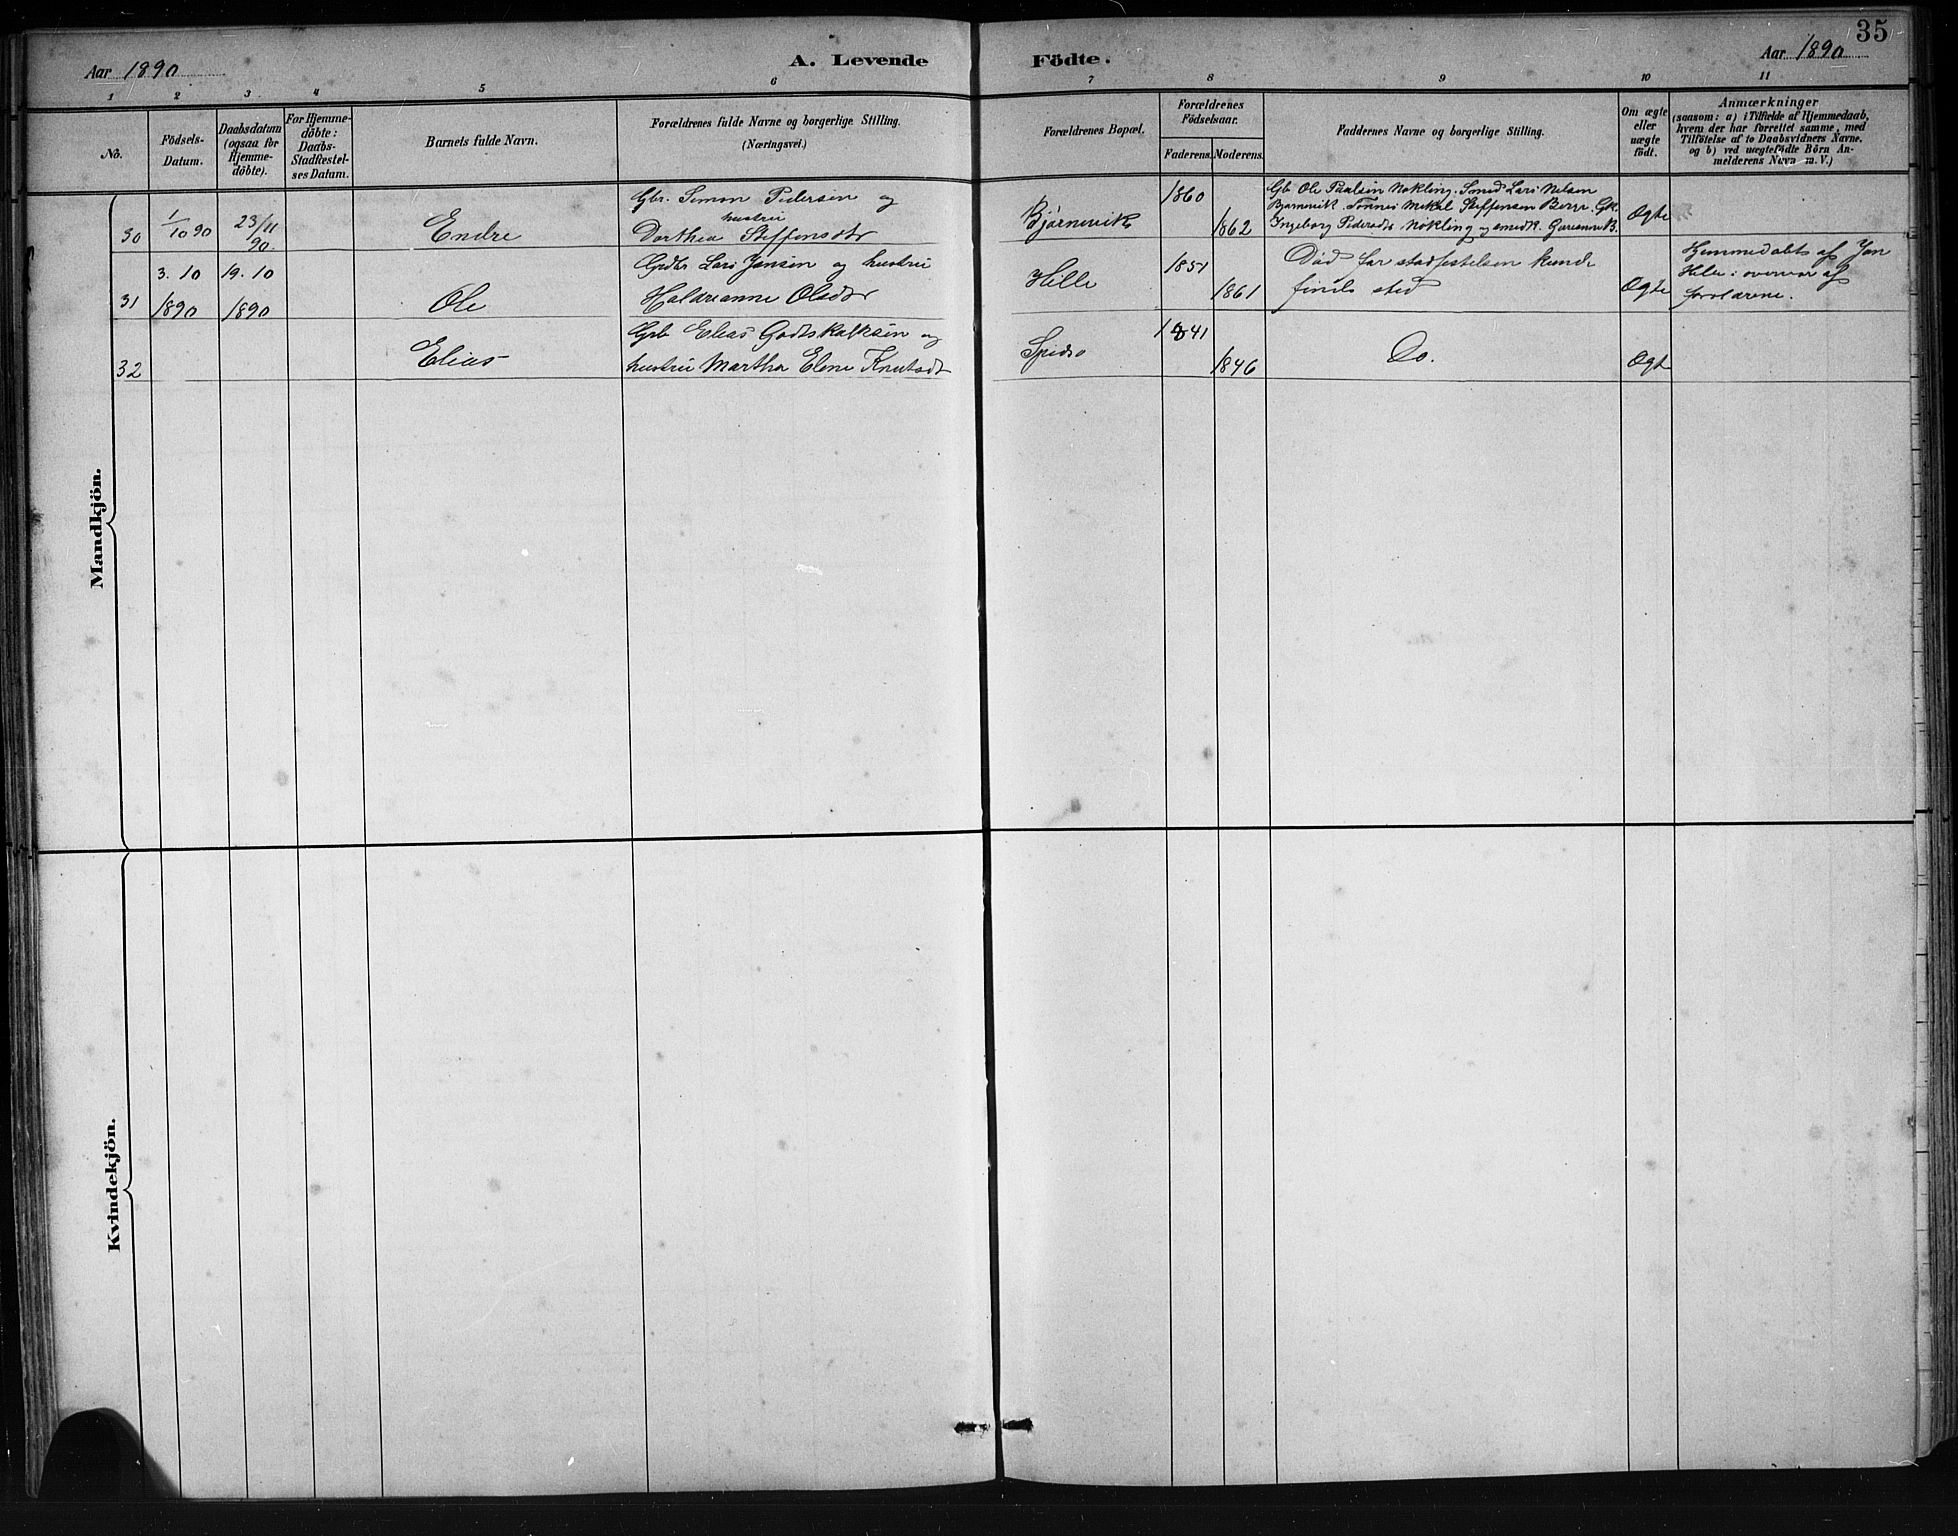 35
Aar 1890
A. Levende Födte.
Aar 1890
1 2 3 4 5 6 7 8 9 10 11
No.
Födsels-
Datum.
Daabsdatum
(ogsaa for
Hjemme-
döbte).
For Hjemme-
döbte:
Daabs-
Stadfestel-
ses Datum.
Barnets fulde Navn.
Forældrenes fulde Navne og borgerlige Stilling.
(Næringsvei.)
Forældrenes Bopæl.
Forældrenes
Födselsaar.
Faderens. Moderens.
Faddernes Navne og borgerlige Stilling.
Om ægte
eller
uægte
födt.
Anmærkninger
(saasom: a) i Tilfælde af Hjemmedaab,
hvem der har forrettet samme, med
Tilföielse af to Daabsvidners Navne.
og b) ved uægtefödte Börn An-
melderens Navn m. V.)
Mandkjön.
30
1/10 90
23/11
90
Endre
Gbr. Simon Pedersen og
hustru
Dorthea Steffensdtr
Bjørnevik
1860
1862
Gb Ole Paulsen Nökling. Smed Lars Nelsen
Bjørnevik Tønnes Mikal Steffensen Berge. Gk.
Ingeborg Pedersdtr Nökling og smedk. B.
Ægte
31
3. 10
1890
19. 10
1890
Ole
Gbr Lars Jansen og hustru
Olsdtr
Hille
1851
1861
Død før stadfestelsen kunde
finde sted
Ægte
Hjemmedøbt af Jan
Hille i overvær af
forældrene.
32
Elias
Gb Elias Godtskalksen og
hustru Martha Elene Knutsdt
1841
1846
Do.
Ægt
Kvindekjön.